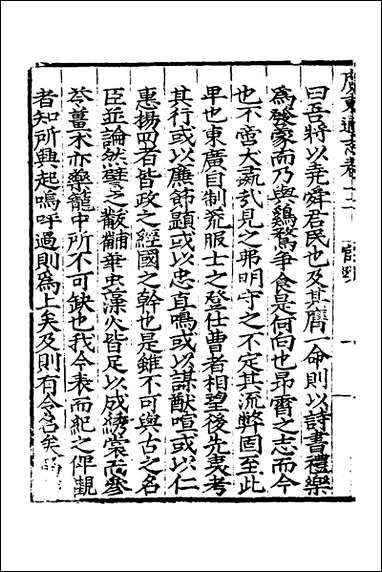 廣東通志卷十二
曰吾將以堯舜君民也及其膺一命則以詩書禮樂
為發蒙而乃與鷄鶩爭食是何向也昂霄之志而今
也不啻大疏哉見之弗明守之不定其流弊固至此
畢也東廣自制荒服士之登仕曹者相望後先夷考
其行或以廉節顯或以忠直鳴或以謀猷喧或以仁
惠揚四者皆政之經國之幹也是雖不可與古之名
臣並論然譬之黻黼華虫藻火皆足以成綉裳而參
苓薑朮亦藥籠中所不可缺也我今表而紀之俾觀
者知所興起嗚呼過則為上矣及則有令名矣